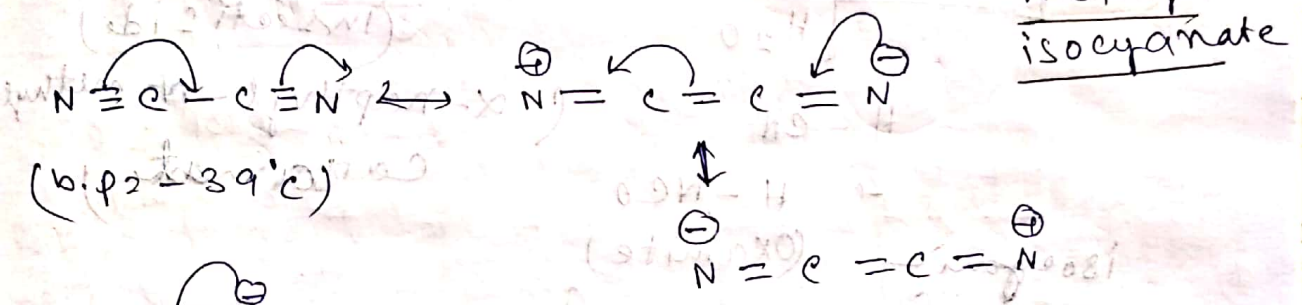 isocyanate
N ≡ C - C ≡ N ⟷ N⊕ = C = C = N⊖
(b.p2 - 39°c)
↕
N⊖ = C = C = N⊕